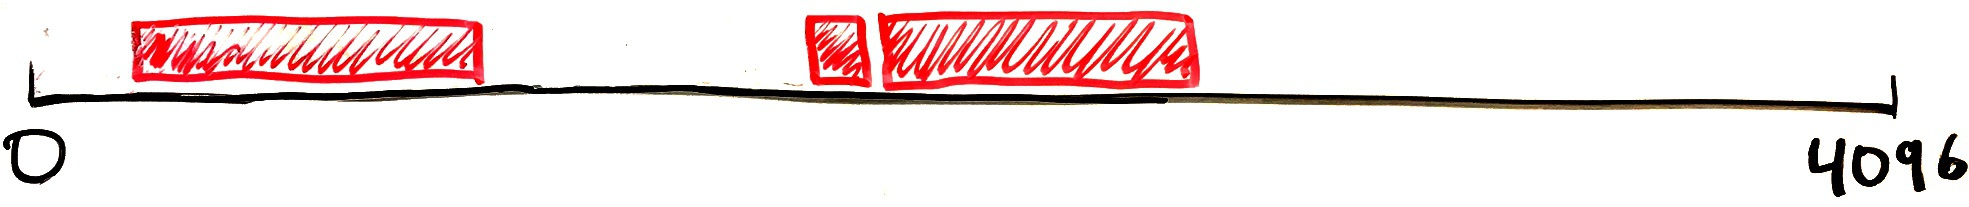 0 4096